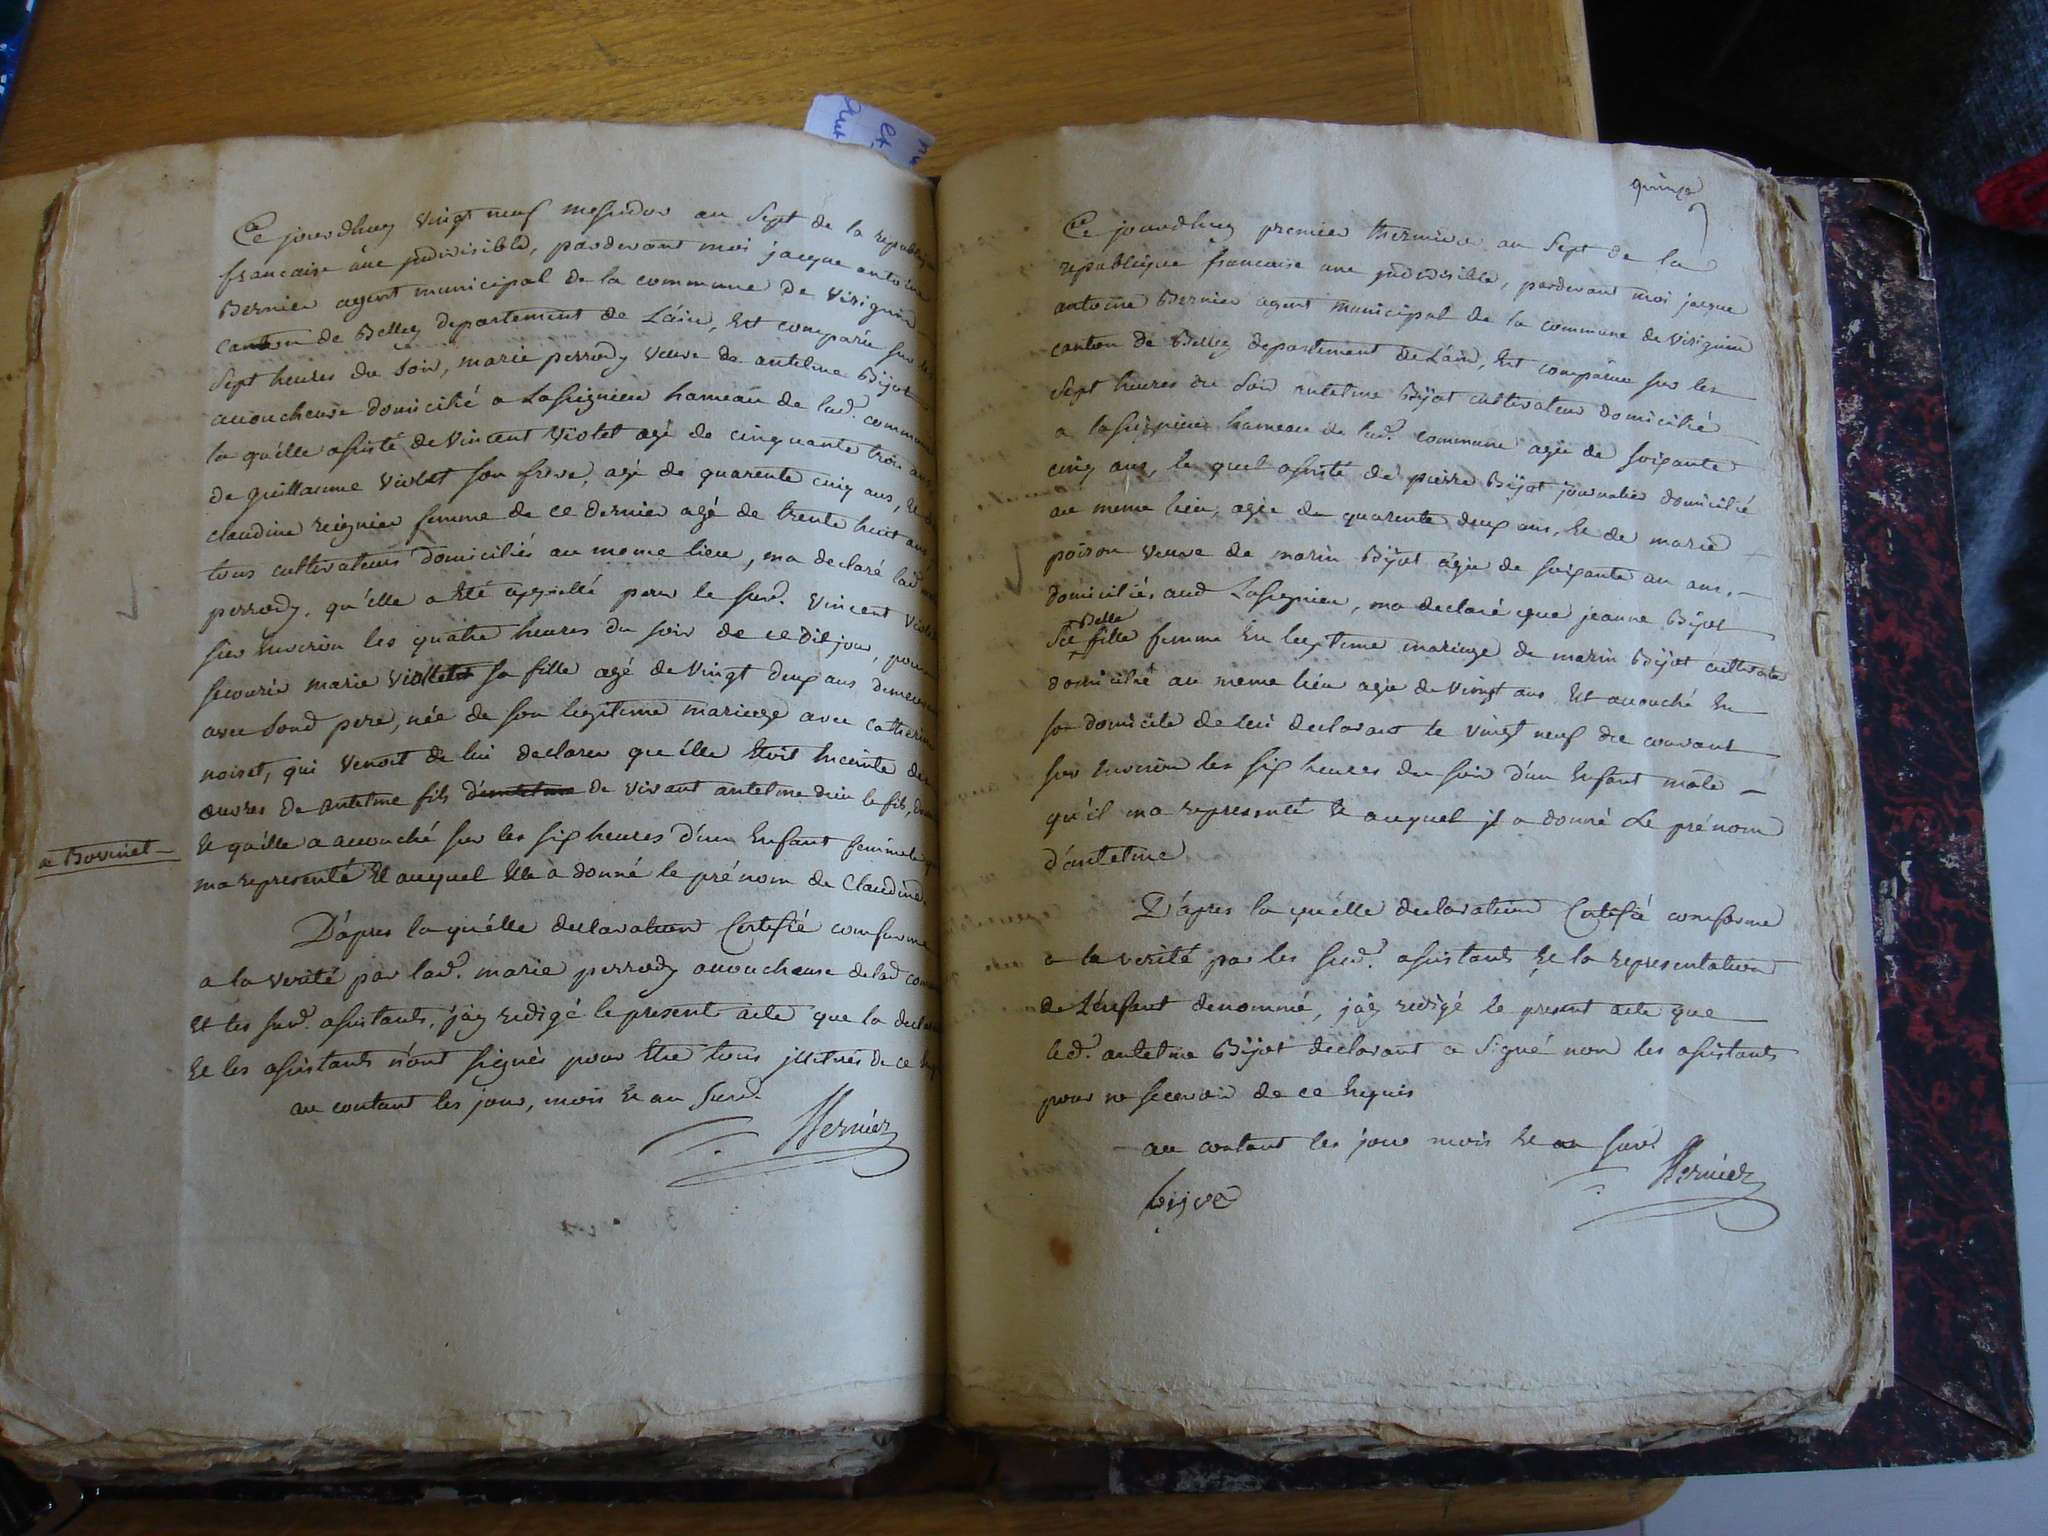 Ce jourdhuy vingt neuf mesidor an sept de la republique
francaise une jndivisible, pardevant moi jacque antoine
Bernier agent municipal de la commune de virignin
canton de Belley departement de L'ain, Est comparüe sur les
sept heures du soir, marie perrody veuve de antelme Bijot
accoucheuse domicilié a Lassignieu hameau de lad. commune
la qu'elle assisté de Vincent Violet agé de cinquante trois ans,
de guillaume violet son frere, agé de quarente cinq ans, Et de
claudine reignier femme de ce dernier agé de trente huit ans
tous cultivateurs domiciliés au meme lieu, ma declaré lad.
perrody, qu'elle a Eté appellé par le sud. vincent violet
sur Environ les quatre heures du soir de ce dit jour, pour
secourir marie violet sa fille agé de vingt deux ans demeurant
avec sond pere, née de son legitime mariage avec catherine
noiret, qui venoit de lui declarer qu'elle Etoit Enceinte des
œuvres de antelme fils de vivant antelme dieu le fils,
Et qu'elle a accouché sur les six heures d'un Enfant feminele
a Bovinet
ma representé Et auquel Elle à donné le prénom de Claudine.
D'apres la qu'elle declaration Certifié conforme
a la verité par lad. marie perrody accoucheuse de lad
Et les sud. assistants, j'ay redigé le present acte que la
Et les assistants n'ont signés pour Etre tous jllitrés de ce
au contant les jour, mois Et an sud.
Bernier
quinze
Ce jourdhuy premier thermidor an sept de la
republique francaise une jndivisible, pardevant moi jacque
antoine Bernier agent municipal de la commune de virignin
canton de Belley departement de L'ain, Est comparüe sur les
sept heures du soir antelme Bijot cultivateur domicilié
a lassignieu hameau de lad. commune agée de soixante
cinq ans, le quel assisté de pierre Bijot journalier domicilié
au meme lieu, agée de quarente deux ans, Et de marie
poison veuve de marin Bijot agée de soixante un ans,
domiciliés aud Lassignieu, ma declaré que jeanne Bijot
Belle
sa fille femme En legitime mariage de marin Bijot cultivateur
domicilié au meme lieu agée de vingt ans Est accouché En
son domicile de lui declarant le vingt neuf du courant
sur Environ les six heures du soir d'un Enfant mâle
qu'il ma representé Et auquel jl a donné Le prénom
d'antelme
D'apres la qu'elle declaration Certifié conforme
a la verité par les sud. assistants Et la representation
de L'enfant denommé, j'ay redigé le present acte que
led. antelme Bijot declarant a signé non les assistants
pour ne scavoir de ce Enquis
au contant les jour mois Et an sud.
Bernier